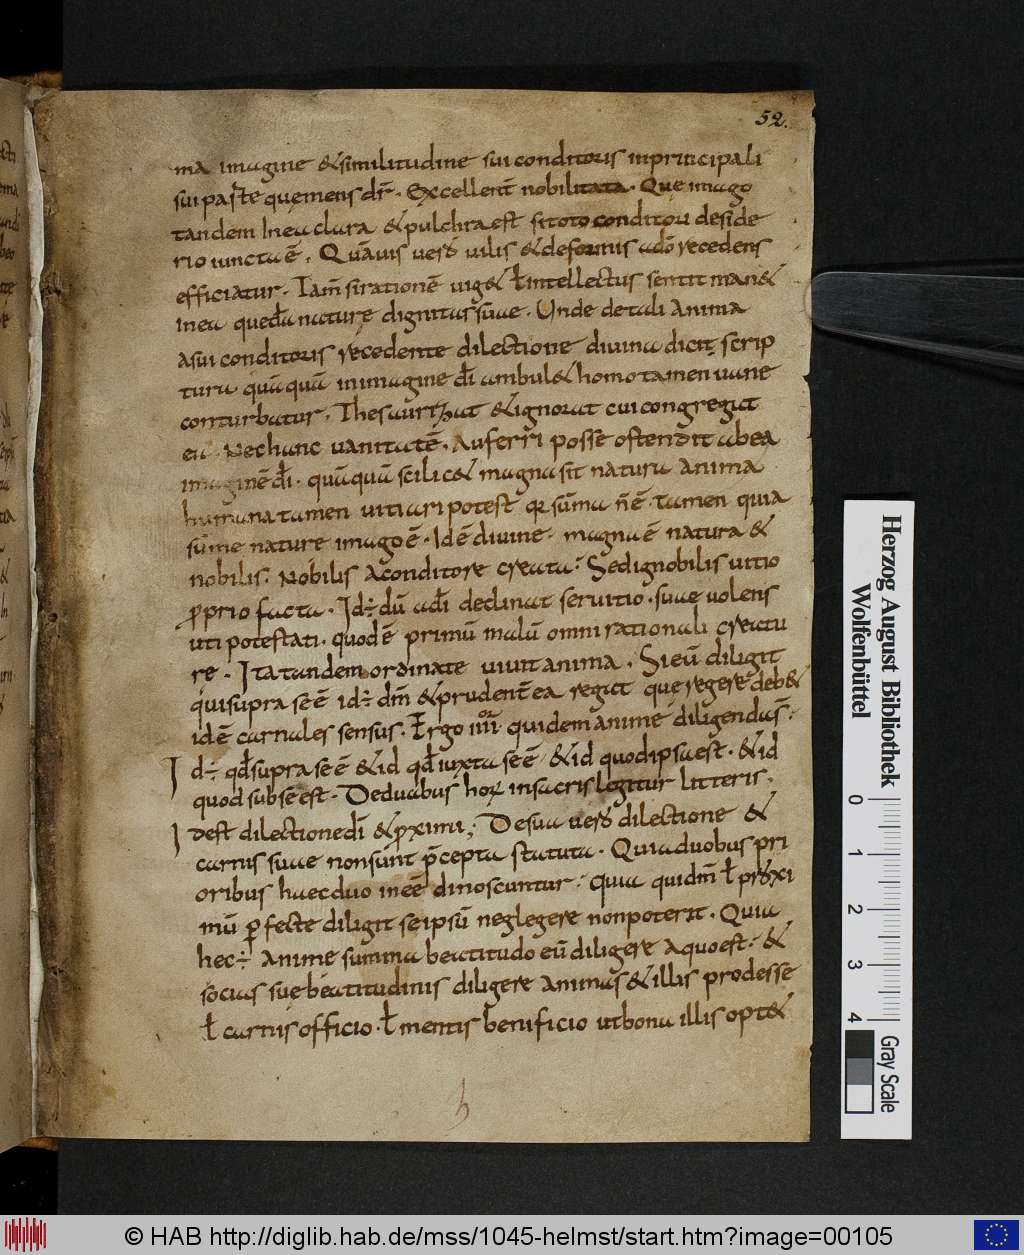 52.
ma imagine & similitudine sui conditoris inprincipali
sui parte quę mens dr̄. Excellent̄ nobilitata. Que imago
tandem Inea clara & pulchra est si toto conditori deside
rio iuncta ē. Quāuis uero uilis & deformis ad ō recedens
efficiatur. Iam̄ si rationē uig& ł intellectus sentit man&
inea quedā nature dignitas suae. Unde de tali anima
a sui conditoris recedente dilectione diuina dicit scrip
tura quāquā in imagine dī ambul& homo tamen uane
conturbatur. Thesaurizat & ignorat cui congregat
ea. Nec hanc uanitatē. Auferri posse ostendit ab ea
imaginē dī. quāquā scilic& magna sit natura anima
humana tamen uitiari potest qr sūma n̄ ē. tamen quia
sūme nature imago ē. Idē diuine. magna ē natura &
nobilis. Nobilis a conditore creata. Sed ignobilis uitio
ꝓprio facta. Id÷ dū a dī declinat seruitio. suae uolens
uti potestati. quod ē primū malū omni rationali creatu
re. Ita tandem ordinate uiuit anima. Si eū diligit
qui supra se ē id÷ dm̄ & prudent̄ ea regit que regere deb&
idē carnales sensus. Ergo iiii quidem anime diligendas
Id÷ qd̄ supra se ē & id qd̄ iuxta se ē & id quod ipsa est. & id
quod subse est. De duabus hoꝝ in sacris legitur litteris.
Idest dilectione dī & ꝓximi; De sua uero dilectione &
carnis suae non sunt p̄cepta statuta. Quia duobus pri
oribus haec duo in eē dinoscuntur. Quia qui dm̄ ł proxi
mū ꝑfecte diligit se ipsū neglegere non poterit. Quia
hec ÷ anime summa beatitudo eū diligere a quo est. &
socias sue beatitudinis diligere animas & illis prodesse
ł carnis officio. ł mentis benificio ut bona illis opt&
Herzog August Bibliothek
Wolfenbüttel
0 1 2 3 4
Gray Scale
© HAB http://diglib.hab.de/mss/1045-helmst/start.htm?image=00105